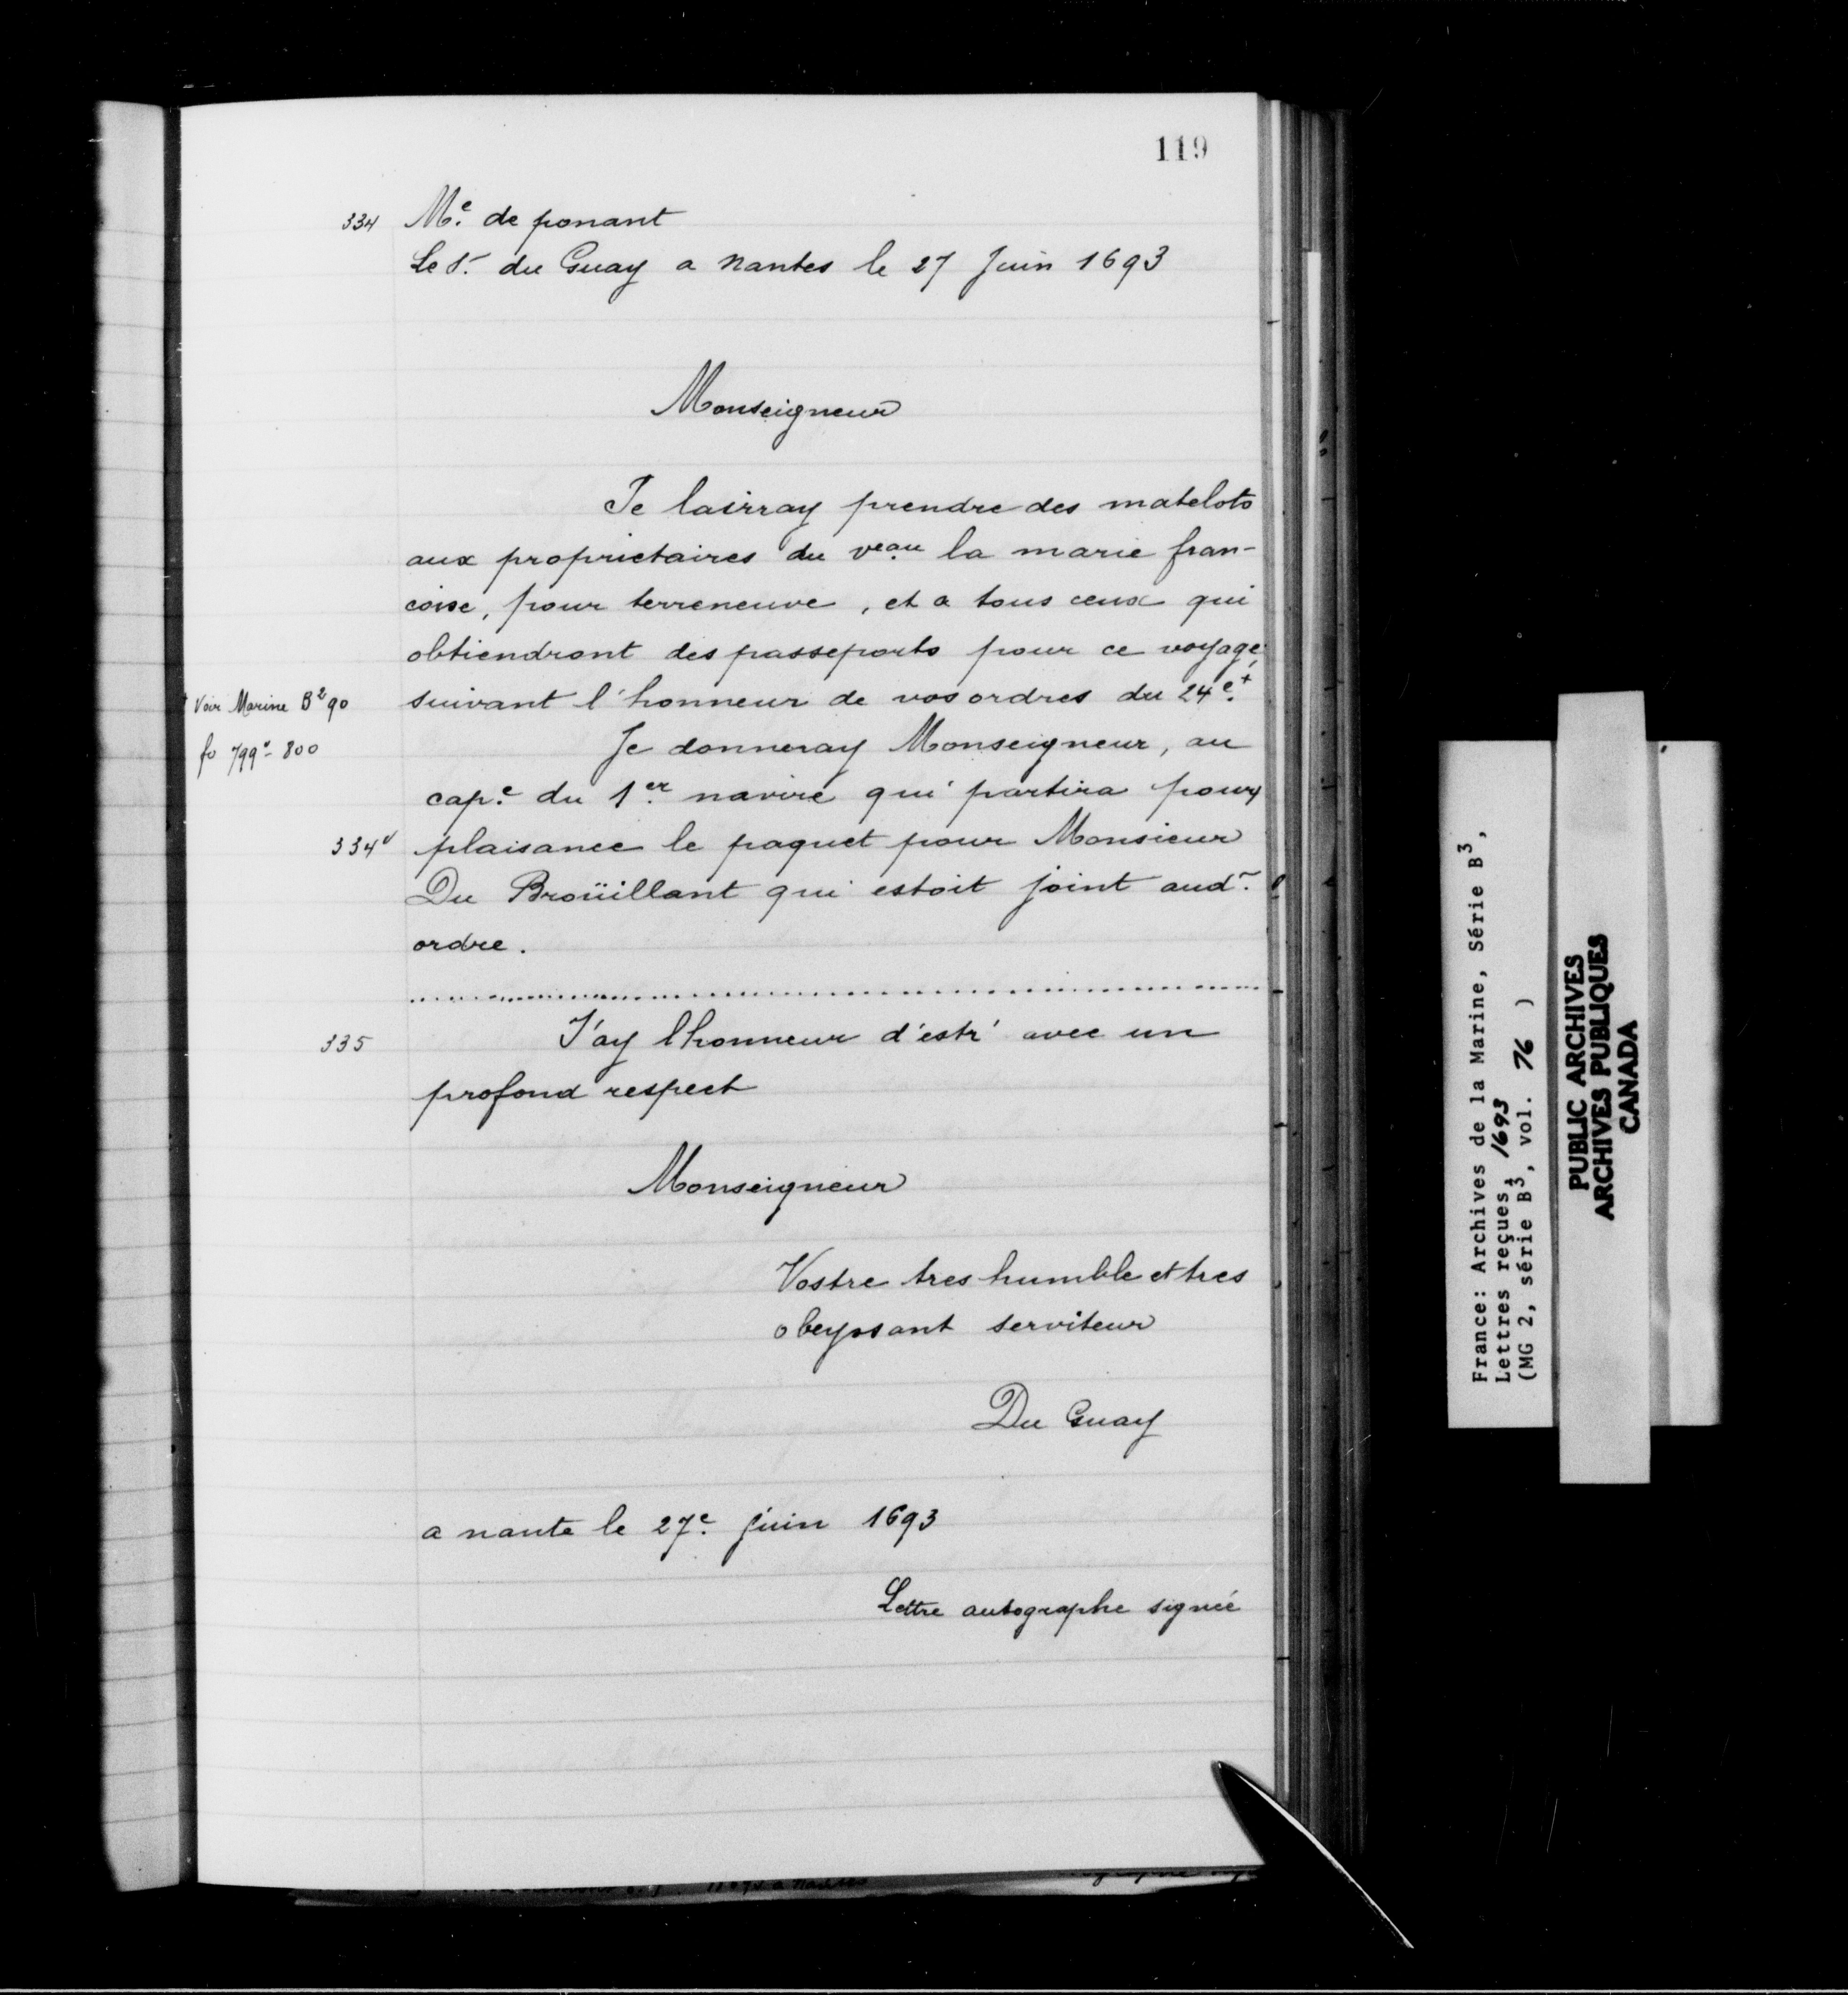 119
334 Me. de ponant
Le Sr. du Guay a Nantes le 27 Juin 1693
Monseigneur
Je lairray prendre des matelots
aux proprietaires du veau. la marie fran-
coise, pour terreneuve, et a tous ceux qui
obtiendront des passeports pour ce voyage,
suivant l'honneur de vos ordres du 24e.+
+ Voir Marine B2 90
fo 799v-800
Je donneray Monseigneur, au
cape. du 1er. navire qui partira pour
334v plaisance le paquet pour Monsieur
Du Broüillant qui estoit joint aud.
ordre.
335 J'ay lhonneur d'estr' avec un
profond respect
Monseigneur
Vostre tres humble et tres
obeyssant serviteur
Du Guay
a nante le 27e. juin 1693
Lettre autographe signée
France: Archives de la Marine, Série B3,
Lettres reçues, 1693
(MG 2, série B3, vol. 76 )
PUBLIC ARCHIVES
ARCHIVES PUBLIQUES
CANADA